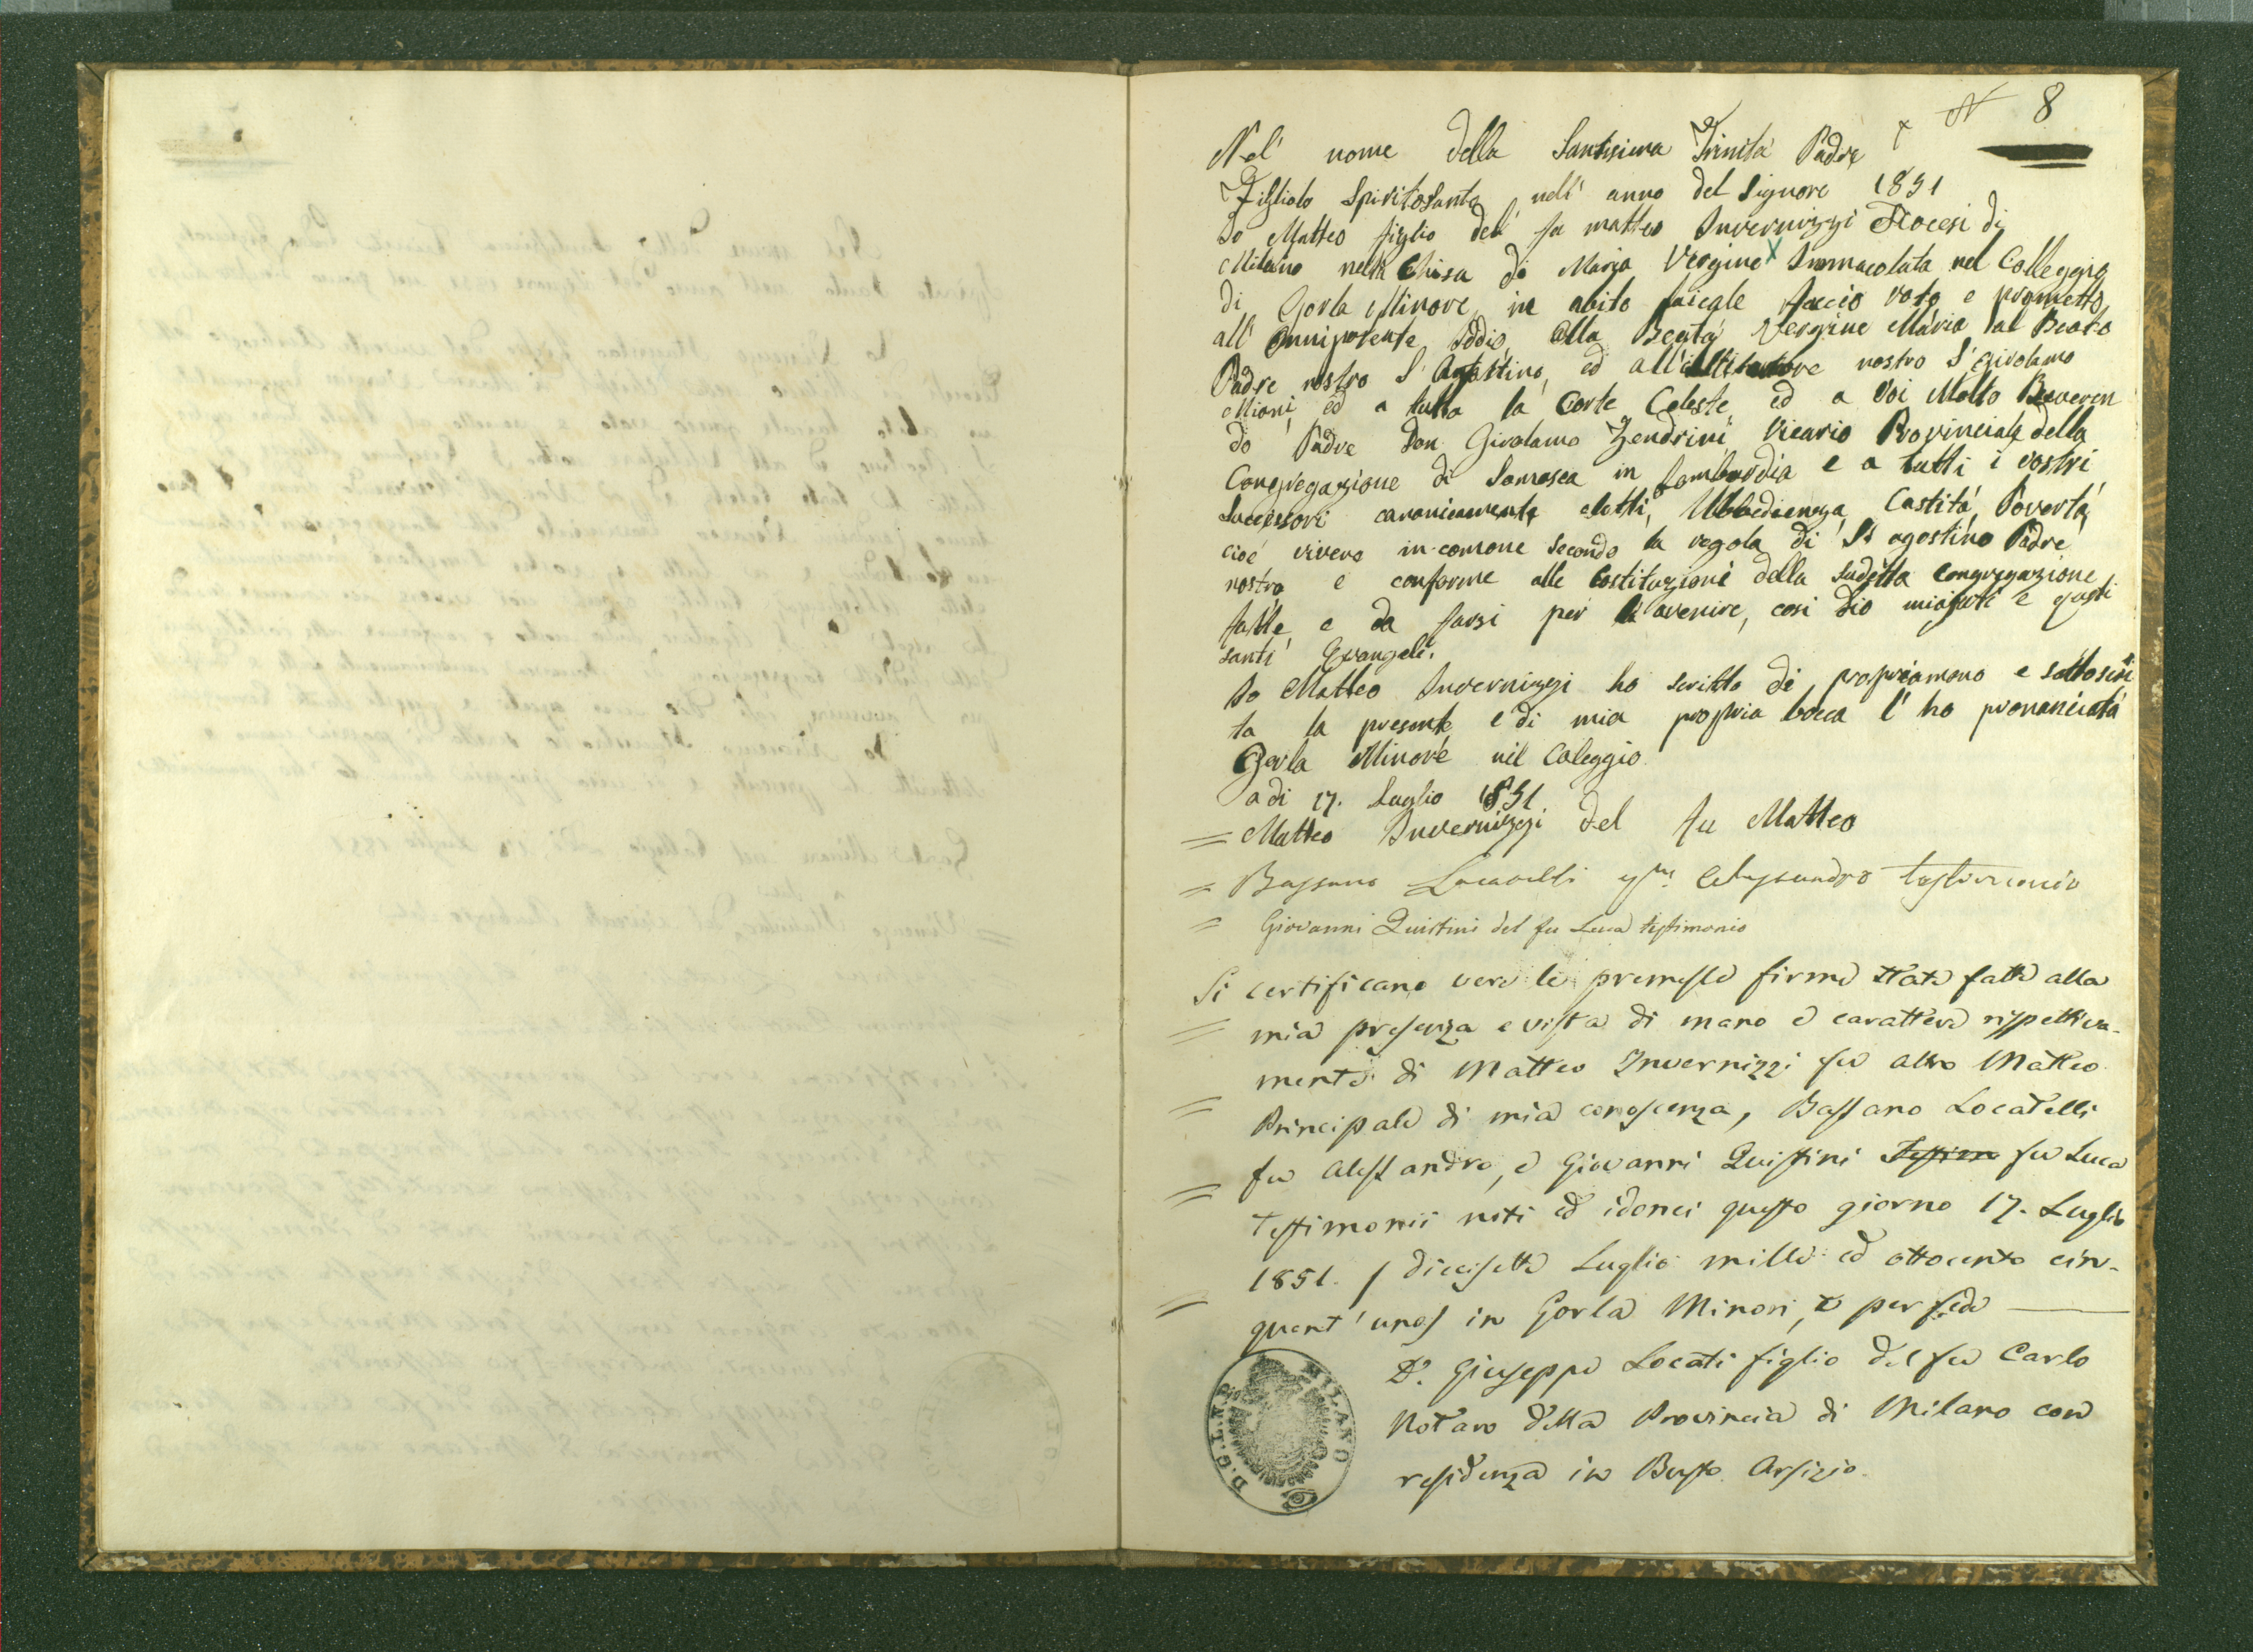 N 8
Nel' nome della Santisima Trinita Padre
Figliolo Spiritosanto, nell' anno del Signore 1851
Io Matteo figlio del' fu matteo Invernizzi Diocesi di
Milano nella Chisa di Maria Vergine Immacolata nel Colleggio
di Gorla Minore in abito laicale faccio voto e prometto
all' Onnipotente Iddio, alla Beata Vergine Maria al Beato
Padre nostro S. Agostino, ed all' nostro S. Girolamo
Miani, ed a tutta la Corte Celeste, ed a Voi Molto Reveren
do Padre Don Girolamo Zendrini Vicario Provinciale della
Congregazione di Somasca in Lombardia e a tutti i vostri
Successori canonicamente eletti, Ubbedienza, Castitá, Povertá,
cioé vivere in comone secondo la regola di St agostino Padre
nostro e conforme alle Costituzioni della sudetta Congregazione
fatte, e da farsi per l'avenire, cosi Dio miajuti e questi
santi Evangeli.
Io Matteo Invernizzi ho scritto di propriamono e sottoscrit
ta la presente e di mia propria bocca l' ho pronunciata
Gorla Minore nil Caleggio
a di 17. Luglio 1851
= Matteo Invernizzi del fu Matteo
= Bassano Locatelli qm. Alessandro testimonio
= Giovanni Quistini del fu Luca testimonio
Si certificano vere le premesse firme state fatte alla
= mia presenza e vista di mano e carattere rispettiva-
mente di Matteo Invernizzi fu altro Matteo
= Principale di mia conoscenza, Bassano Locatelli
fu Alessandro, e Giovanni Quistini Testimo fu Luca
= Testimonii noti ed idonei questo giorno 17. Luglio
1851. / diecisette Luglio mille ed ottocento cin-
= quant' uno/ in Gorla Minori, e per fede
Dr. Giuseppe Locati figlio del fu Carlo
Notaro della Provincia di Milano con
residenza in Busto Arsizio.
D. G. L. N. P. MILANO